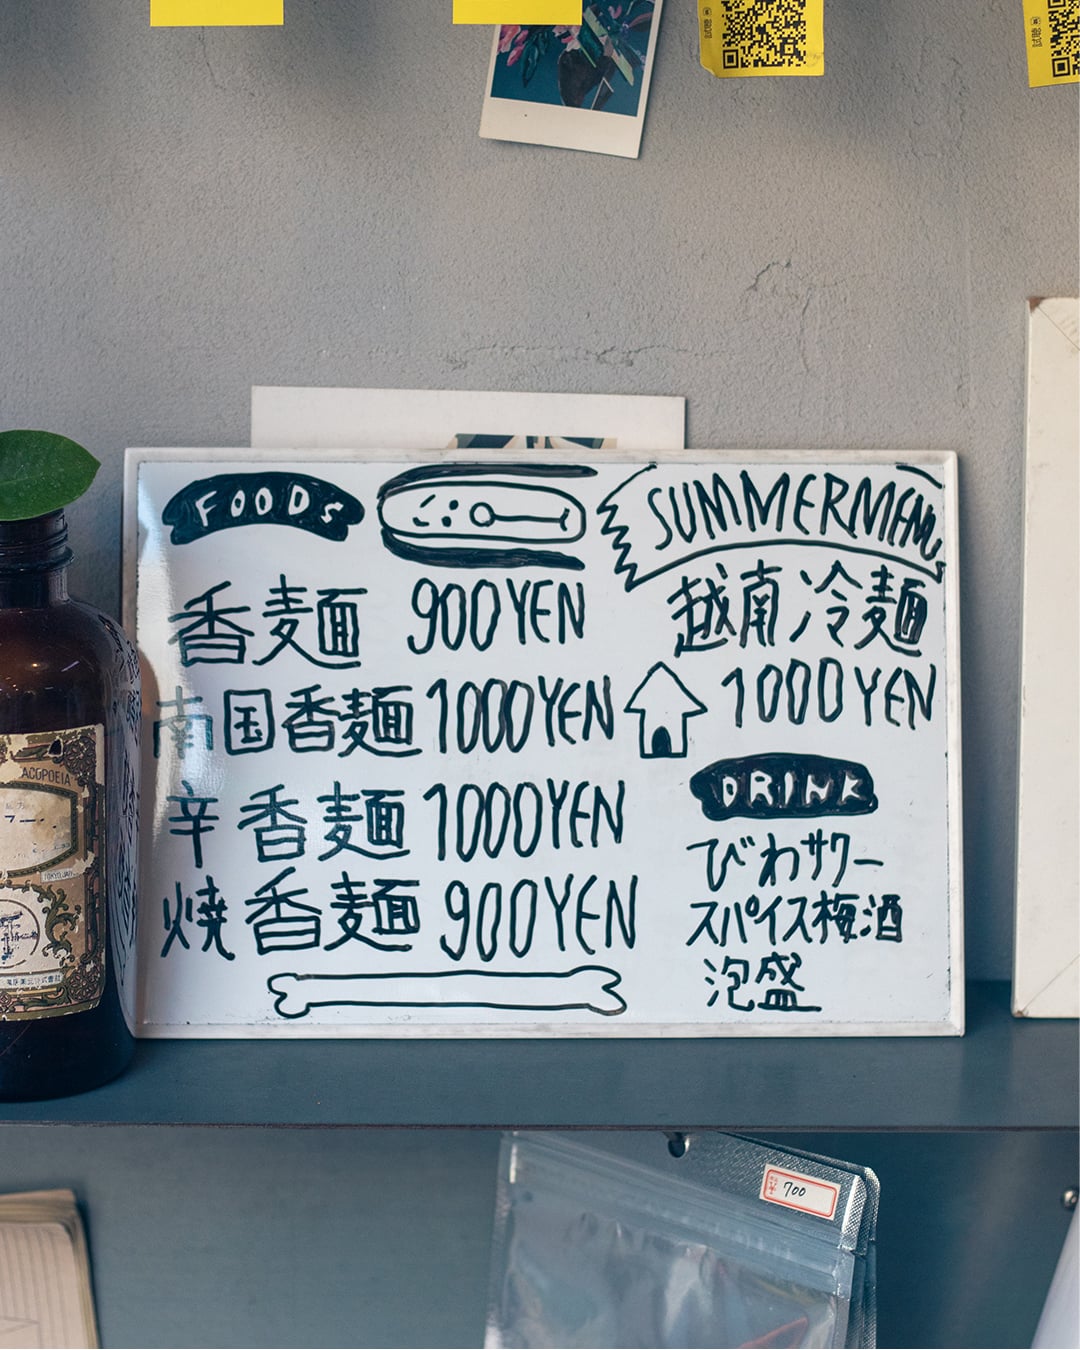 試聴
試聴
FOODS
香麺 900YEN
南国香麺 1000YEN
辛香麺 1000YEN
焼香麺 900YEN
SUMMERMENU
越南冷麺
1000YEN
DRINK
びわサワー
スパイス梅酒
泡盛
ACOPOEIA
700